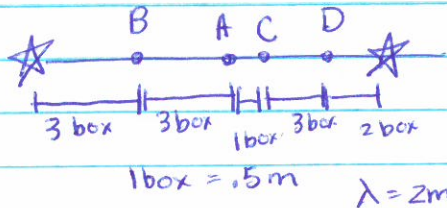 B A C D
3 box 3 box 1 box 3 box 2 box
1 box = .5m λ = 2m